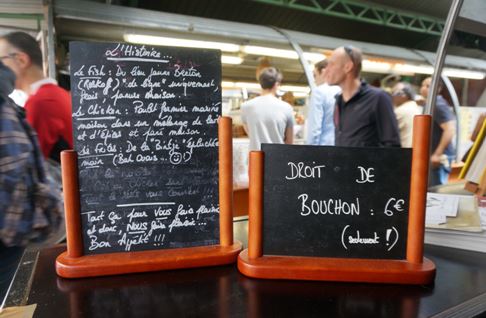 L'Histoire...
Le Fish : Du lieu jaune Breton
(Roskoff) "de ligne" uniquement,
frais, panure maison...
Le Chicken : Poulet fermier mariné
maison dans un mélange de lait
et d'épices et pané maison.
Les Frites : De la "Bintje" épluchée
main (Bah ouais...
Tout ça pour vous faire plaisir
et donc, NOUS faire plaisir...
Bon Appétit !!!
DROIT DE
BOUCHON : 6€
(seulement !)